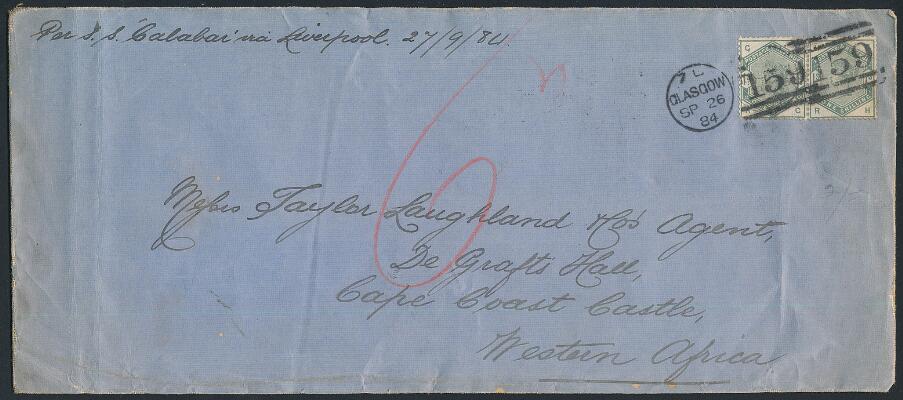 Per S. S. Calabar via Liverpool. 27/9/84.
7 L
GLASGOW
SP 26
84
159 159
G
G R H
6
Messrs Taylor Laughland &Co's Agent,
De Grafts Hall,
Cape Coast Castle,
Western Africa